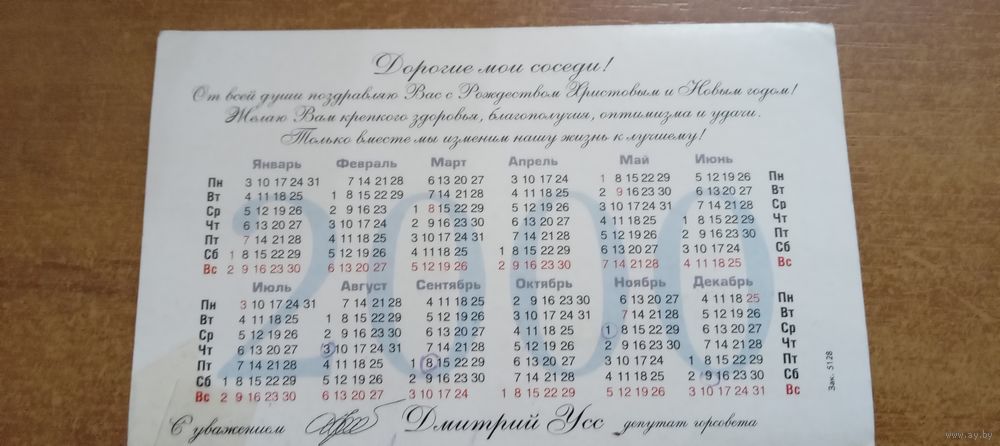 Дорогие мои соседи!
От всей души поздравляю Вас с Рождеством Христовым и Новым годом!
Желаю Вам крепкого здоровья, благополучия, оптимизма и удачи.
Только вместе мы изменим нашу жизнь к лучшему!
2000
Январь Февраль Март Апрель Май Июнь
Пн 3 10 17 24 31 7 14 21 28 6 13 20 27 3 10 17 24 1 8 15 22 29 5 12 19 26 Пн
Вт 4 11 18 25 1 8 15 22 29 7 14 21 28 4 11 18 25 2 9 16 23 30 6 13 20 27 Вт
Ср 5 12 19 26 2 9 16 23 1 8 15 22 29 5 12 19 26 3 10 17 24 31 7 14 21 28 Ср
Чт 6 13 20 27 3 10 17 24 2 9 16 23 30 6 13 20 27 4 11 18 25 1 8 15 22 29 Чт
Пт 7 14 21 28 4 11 18 25 3 10 17 24 31 7 14 21 28 5 12 19 26 2 9 16 23 30 Пт
Сб 1 8 15 22 29 5 12 19 26 4 11 18 25 1 8 15 22 29 6 13 20 27 3 10 17 24 Сб
Вс 2 9 16 23 30 6 13 20 27 5 12 19 26 2 9 16 23 30 7 14 21 28 4 11 18 25 Вс
Июль Август Сентябрь Октябрь Ноябрь Декабрь
Пн 3 10 17 24 31 7 14 21 28 4 11 18 25 2 9 16 23 30 6 13 20 27 4 11 18 25 Пн
Вт 4 11 18 25 1 8 15 22 29 5 12 19 26 3 10 17 24 31 7 14 21 28 5 12 19 26 Вт
Ср 5 12 19 26 2 9 16 23 30 6 13 20 27 4 11 18 25 1 8 15 22 29 6 13 20 27 Ср
Чт 6 13 20 27 3 10 17 24 31 7 14 21 28 5 12 19 26 2 9 16 23 30 7 14 21 28 Чт
Пт 7 14 21 28 4 11 18 25 1 8 15 22 29 6 13 20 27 3 10 17 24 1 8 15 22 29 Пт
Сб 1 8 15 22 29 5 12 19 26 2 9 16 23 30 7 14 21 28 4 11 18 25 2 9 16 23 30 Сб
Вс 2 9 16 23 30 6 13 20 27 3 10 17 24 1 8 15 22 29 5 12 19 26 3 10 17 24 31 Вс
Зак. 5128
С уважением Дмитрий Усс депутат горсовета
www.ay.by